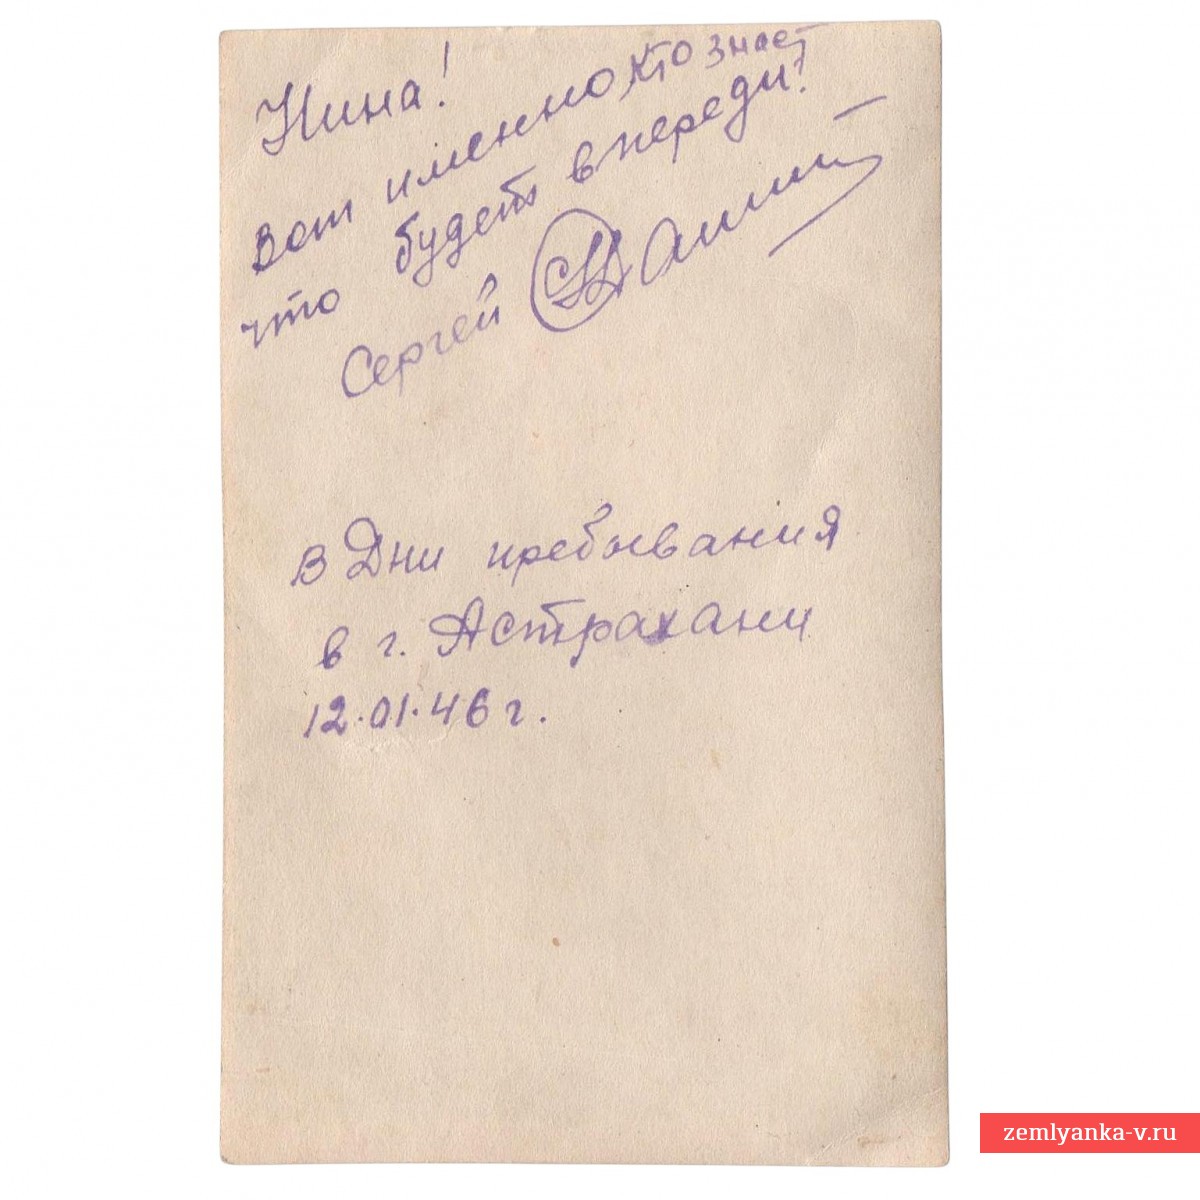 Нина!
Вот именно, кто знает
что будет впереди?
Сергей
В Дни пребывания
в г. Астрахани
12.01.46 г.
zemlyanka-v.ru